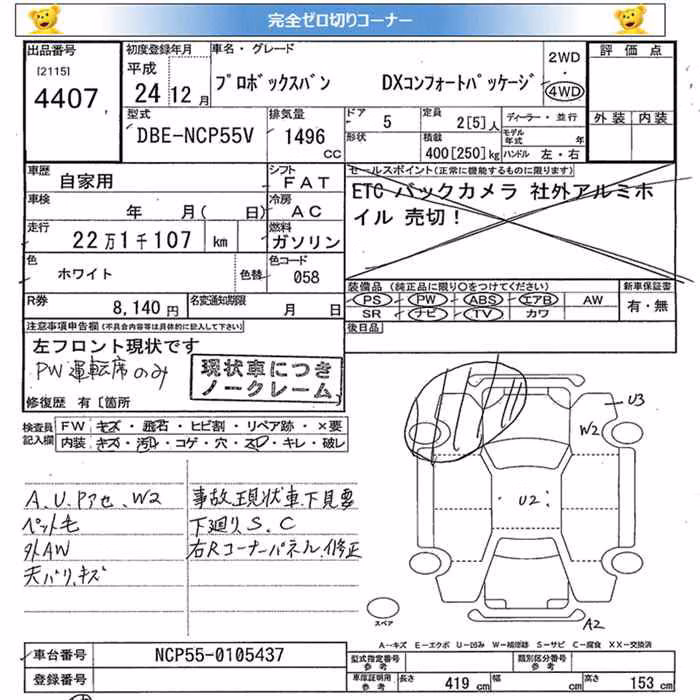 完全ゼロ切りコーナー
出品番号
[2115]
4407
初度登録年月
平成
24 12 月
車名・グレード
プロボックスバン DXコンフォートパッケージ
2WD
・
4WD
評価点
外装 内装
型式
DBE-NCP55V
排気量
1496
CC
ドア
5
定員
2[5] 人
ディーラー・並行
形状
積載
400[250] kg
モデル
年式 年
ハンドル 左・右
車歴
自家用
シフト
FAT
セールスポイント(正常に機能するものに限ります)
ETC バックカメラ 社外アルミホ
イル 売切！
車検
年 月( 日)
冷房
AC
走行
22万1千107 km
燃料
ガソリン
色
ホワイト
色替
色コード
058
装備品 (純正品に限り○をつけてください)
新車保証書
PS PW ABS エアB AW
有・無
SR ナビ TV カワ
R券
8,140 円
名変通知期限
月 日
後日品
注意事項申告欄(不具合内容等は具体的に記入して下さい)
左フロント現状です
PW運転席のみ
現状車につき
ノークレーム
修復歴 有〔箇所
検査員
記入欄
FW キズ・飛石・ヒビ割・リペア跡・×要
内装 キズ・汚れ・コゲ・穴・スレ・キレ・破レ
A.U.Pアセ、W2
ペット毛
外AW
天バリ、キズ
事故現状車下見要
下廻りS.C
右Rコーナーパネル修正
U3
W2
U2
A2
スペア
A-キズ E-エクボ U-凹み W-補修跡 S-サビ C-腐食 XX-交換済
車台番号
NCP55-0105437
登録番号
型式指定番号
参考
類別区分番号
参考
車庫証明用
参考
長さ
419 cm
幅
cm
高さ
153 cm